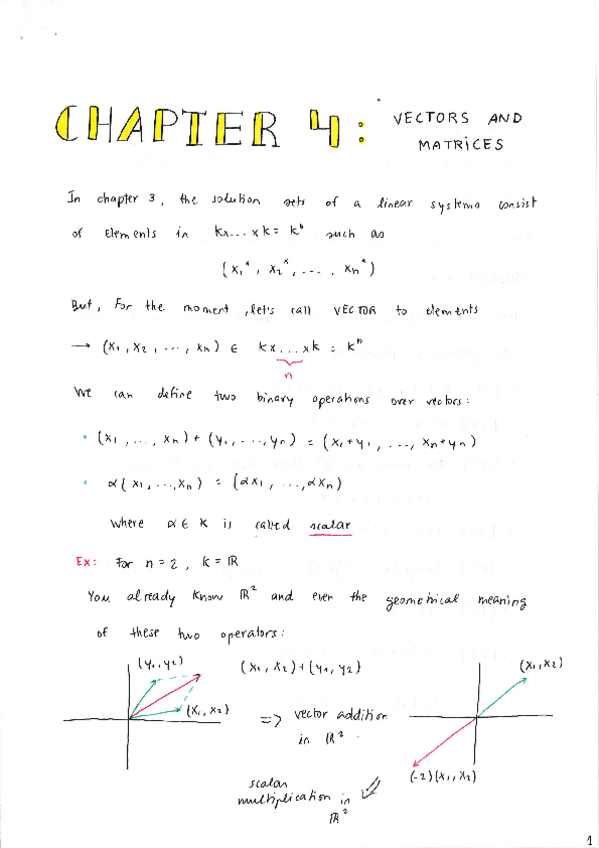 CHAPTER 4: VECTORS AND
MATRICES
In chapter 3, the solution sets of a linear systems consist
of elements in kx...xk = kⁿ such as
(x₁*, x₂*, ..., xₙ*)
But, for the moment, let's call VECTOR to elements
→ (x₁, x₂, ..., xₙ) ∈ kx...xk = kⁿ
n
We can define two binary operations over vectors:
• (x₁, ..., xₙ) + (y₁, ..., yₙ) = (x₁+y₁, ..., xₙ+yₙ)
• α(x₁, ..., xₙ) = (αx₁, ..., αxₙ)
Where α ∈ K is called scalar
Ex: For n = 2, k = ℝ
You already know ℝ² and even the geometrical meaning
of these two operators:
(y₁, y₂)
(x₁, x₂) + (y₁, y₂)
(x₁, x₂)
(x₁, x₂)
=> vector addition
in ℝ²
(-2)(x₁, x₂)
scalar
multiplication in
ℝ²
1